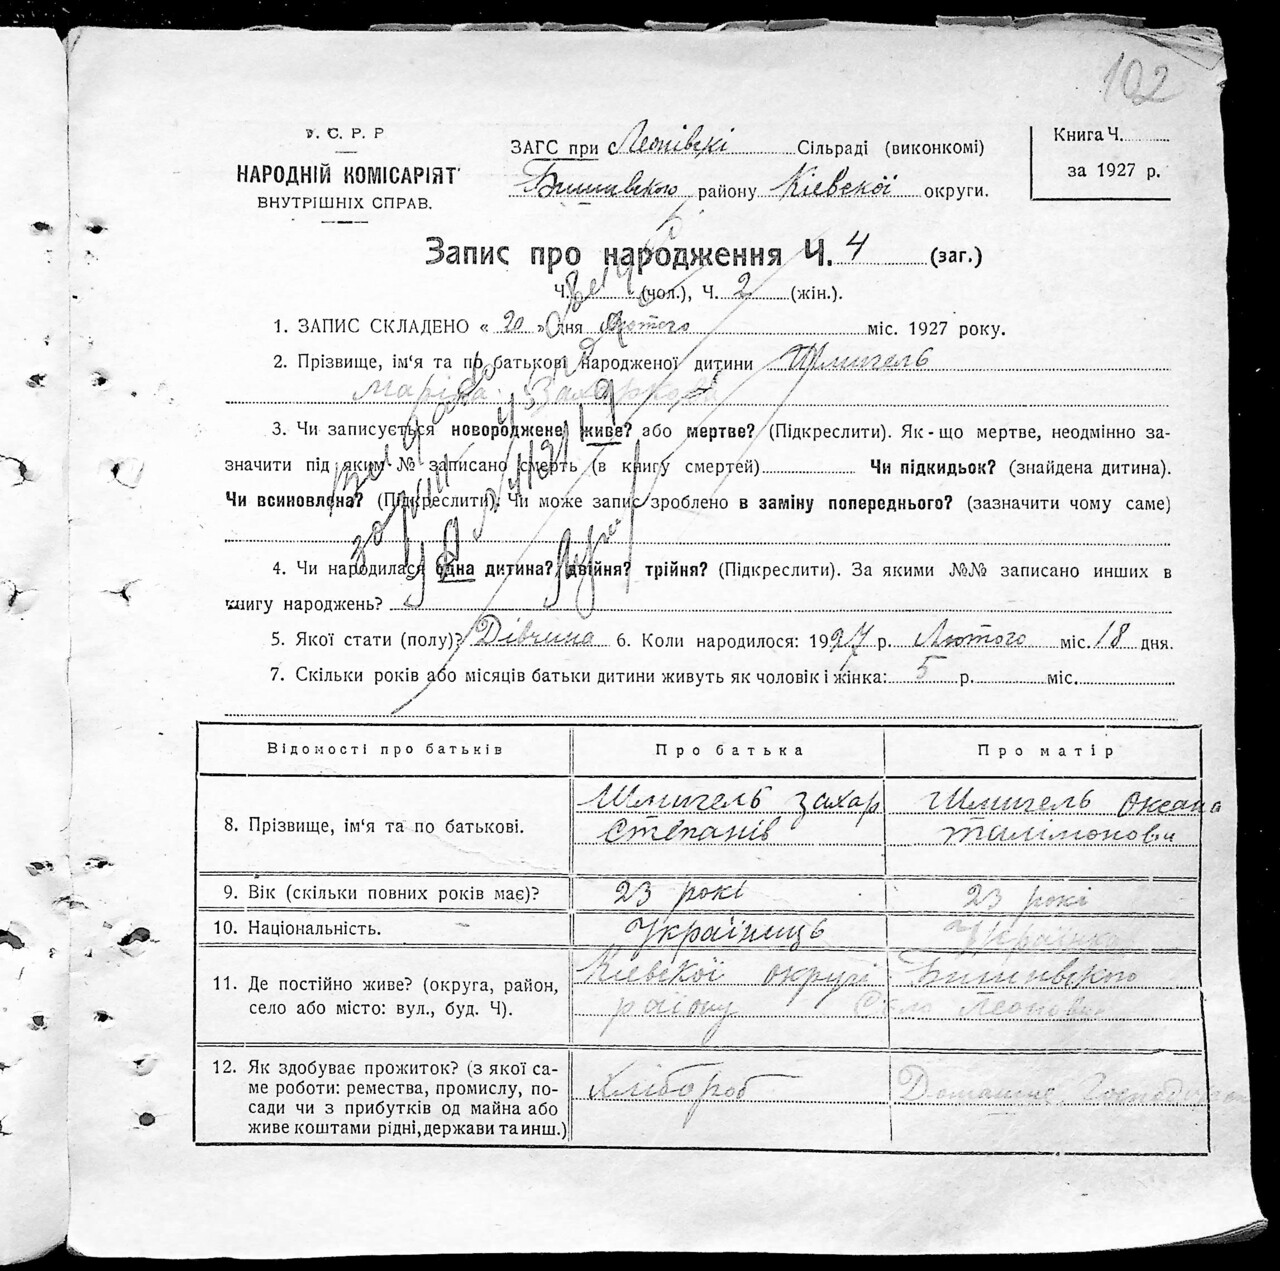 102
У. С. Р. Р
НАРОДНІЙ КОМІСАРІЯТ
ВНУТРІШНІХ СПРАВ.
ЗАГС при Леонівскі Сільраді (виконкомі)
Бишівського району Кіевскої округи.
Книга Ч.
за 1927 р.
Запис про народження Ч. 4 (заг.)
Ч. (чол.), Ч. 2 (жін.).
1. ЗАПИС СКЛАДЕНО « 20 » дня Лютого міс. 1927 року.
2. Прізвище, ім'я та по батькові народженої дитини Шмигель
Марія Захаркова
3. Чи записується новороджене живе? або мертве? (Підкреслити). Як-що мертве, неодмінно за-
значити під яким № записано смерть (в книгу смертей) Чи підкидьок? (знайдена дитина).
Чи всиновлена? (Підкреслити). Чи може запис зроблено в заміну попереднього? (зазначити чому саме)
4. Чи народилася одна дитина? двійня? трійня? (Підкреслити). За якими №№ записано инших в
книгу народжень?
5. Якої стати (полу)? Дівчина 6. Коли народилося: 1927 р. Лютого міс. 18 дня.
7. Скільки років або місяців батьки дитини живуть як чоловік і жінка: 5 р. міс.
Відомості про батьків Про батька Про матір
8. Прізвище, ім'я та по батькові. Шмигель Захар Степанів Шмигель Оксана Талімонови
9. Вік (скільки повних років має)? 23 рокі 23 рокі
10. Національність. Українець Українка
11. Де постійно живе? (округа, район, село або місто: вул., буд. Ч). Кіевскої округі Бишівського
району Село Леоновка
12. Як здобуває прожиток? (з якої са-
ме роботи: ремества, промислу, по-
сади чи з прибутків од майна або
живе коштами рідні, держави та инш.)
Хлібороб Домашнє